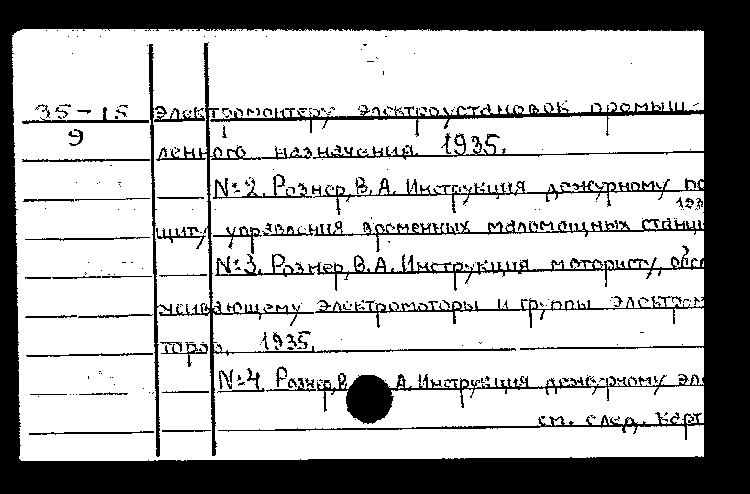 35-15 электромонтеру электроустановок промыш-
9
ленного назначения. 1935.
№2. Рознер, В. А. Инструкция дежурному по
193
щиту управления временных маломощных станци
№3. Рознер, В. А. Инструкция мотористу, обсл
живающему электромоторы и группы электром
торов. 1935.
№4. Рознер, В. А. Инструкция дежурному эле
см. след. карт